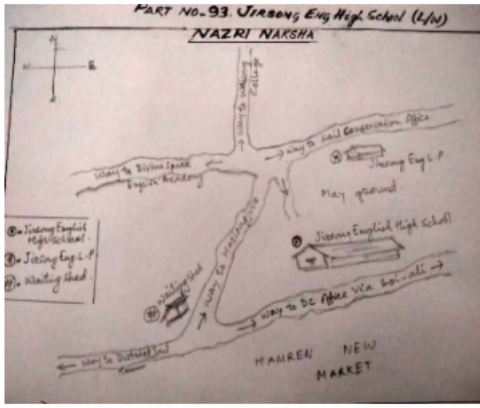 PART NO-93. JIRSONG Eng High School (L/W)
NAZRI NAKSHA
N
E
S
Way to Waisong
College
Way to Soil Conservation Office
Way to Divine Spark
English Academy
Jirsong Eng L.P.
Play ground.
Jirsong English High School.
Jirsong English
High School.
Jirsong Eng L.P
Waiting Shed.
Waiting Shed
Way to
Way to DC Office Via Boi-ali
Way to District Jail
Hamren
HAMREN NEW
MARKET